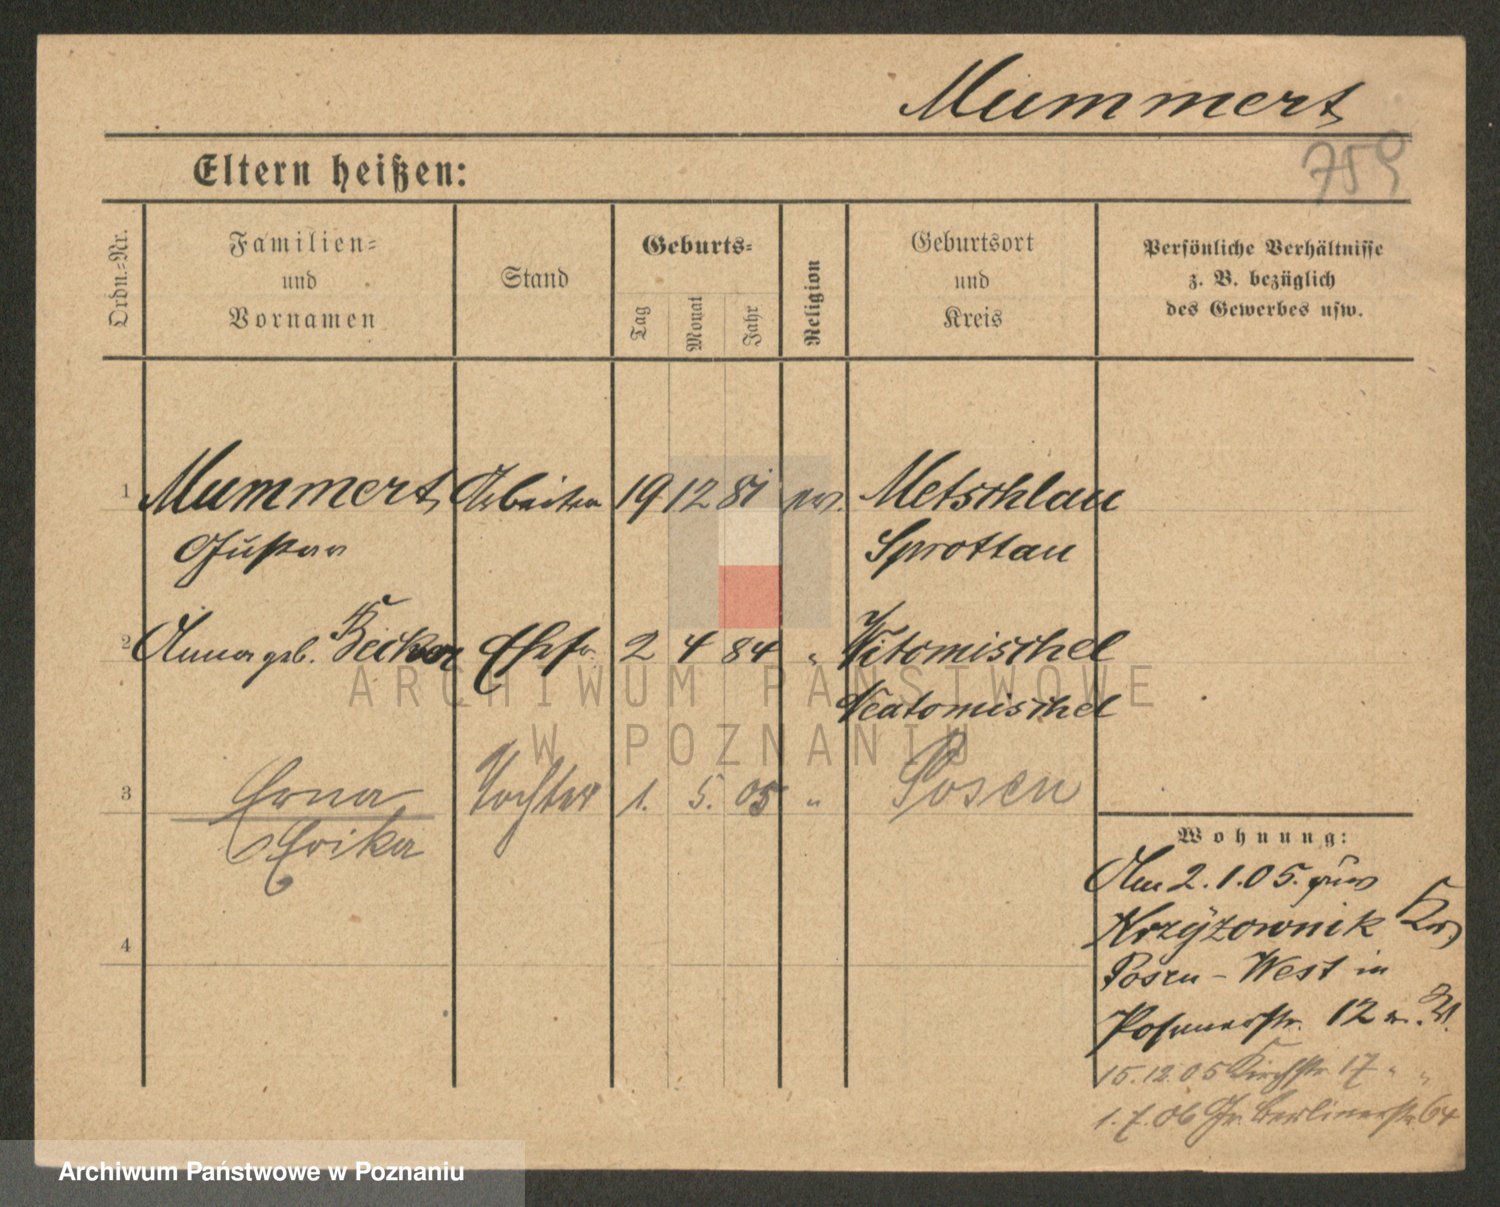 Mummert
759
Eltern heißen:
Ordn.-Nr.
Familien-
und
Vornamen
Stand
Geburts-
Tag
Monat
Jahr
Religion
Geburtsort
und
Kreis
Persönliche Verhältnisse
z. B. bezüglich
des Gewerbes usw.
1 Mummert Arbeiter 19 12 81 ev. Metschlau
Gustav Sprottau
2 Anna geb. Becker Ehefr. 2 4 84 " Witomischel
Neutomischel
3 Erna Tochter 1. 5. 05 " Posen
Erika
4
Wohnung:
Am 2.1.05.
Krzyżownik Krs
Posen-West in
Posenerstr. 12
15.12.05 Kirchstr. 17 " "
1.7.06 Gr. Berlinerstr. 64
ARCHIWUM PAŃSTWOWE
W POZNANIU
Archiwum Państwowe w Poznaniu